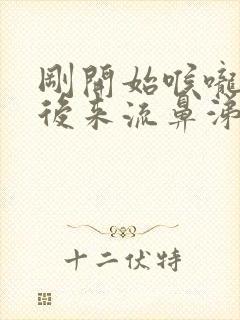 剛開始喉嚨
後来流鼻涕
十二伏特